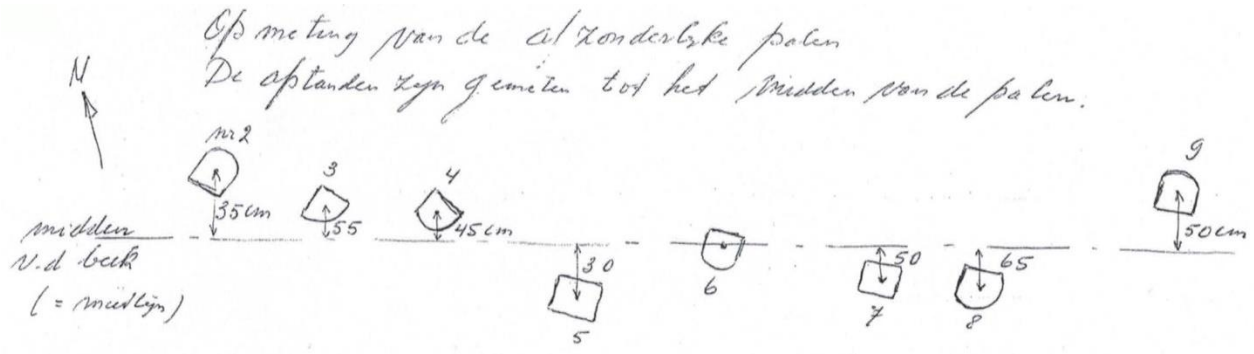 Opmeting van de afzonderlyke palen
De afstanden zyn gemeten tot het midden van de palen.
N
nr 2
3
4
9
35cm
55
45cm
50cm
midden
v.d beek
(= meetlijn)
30
50
65
5
6
7
8